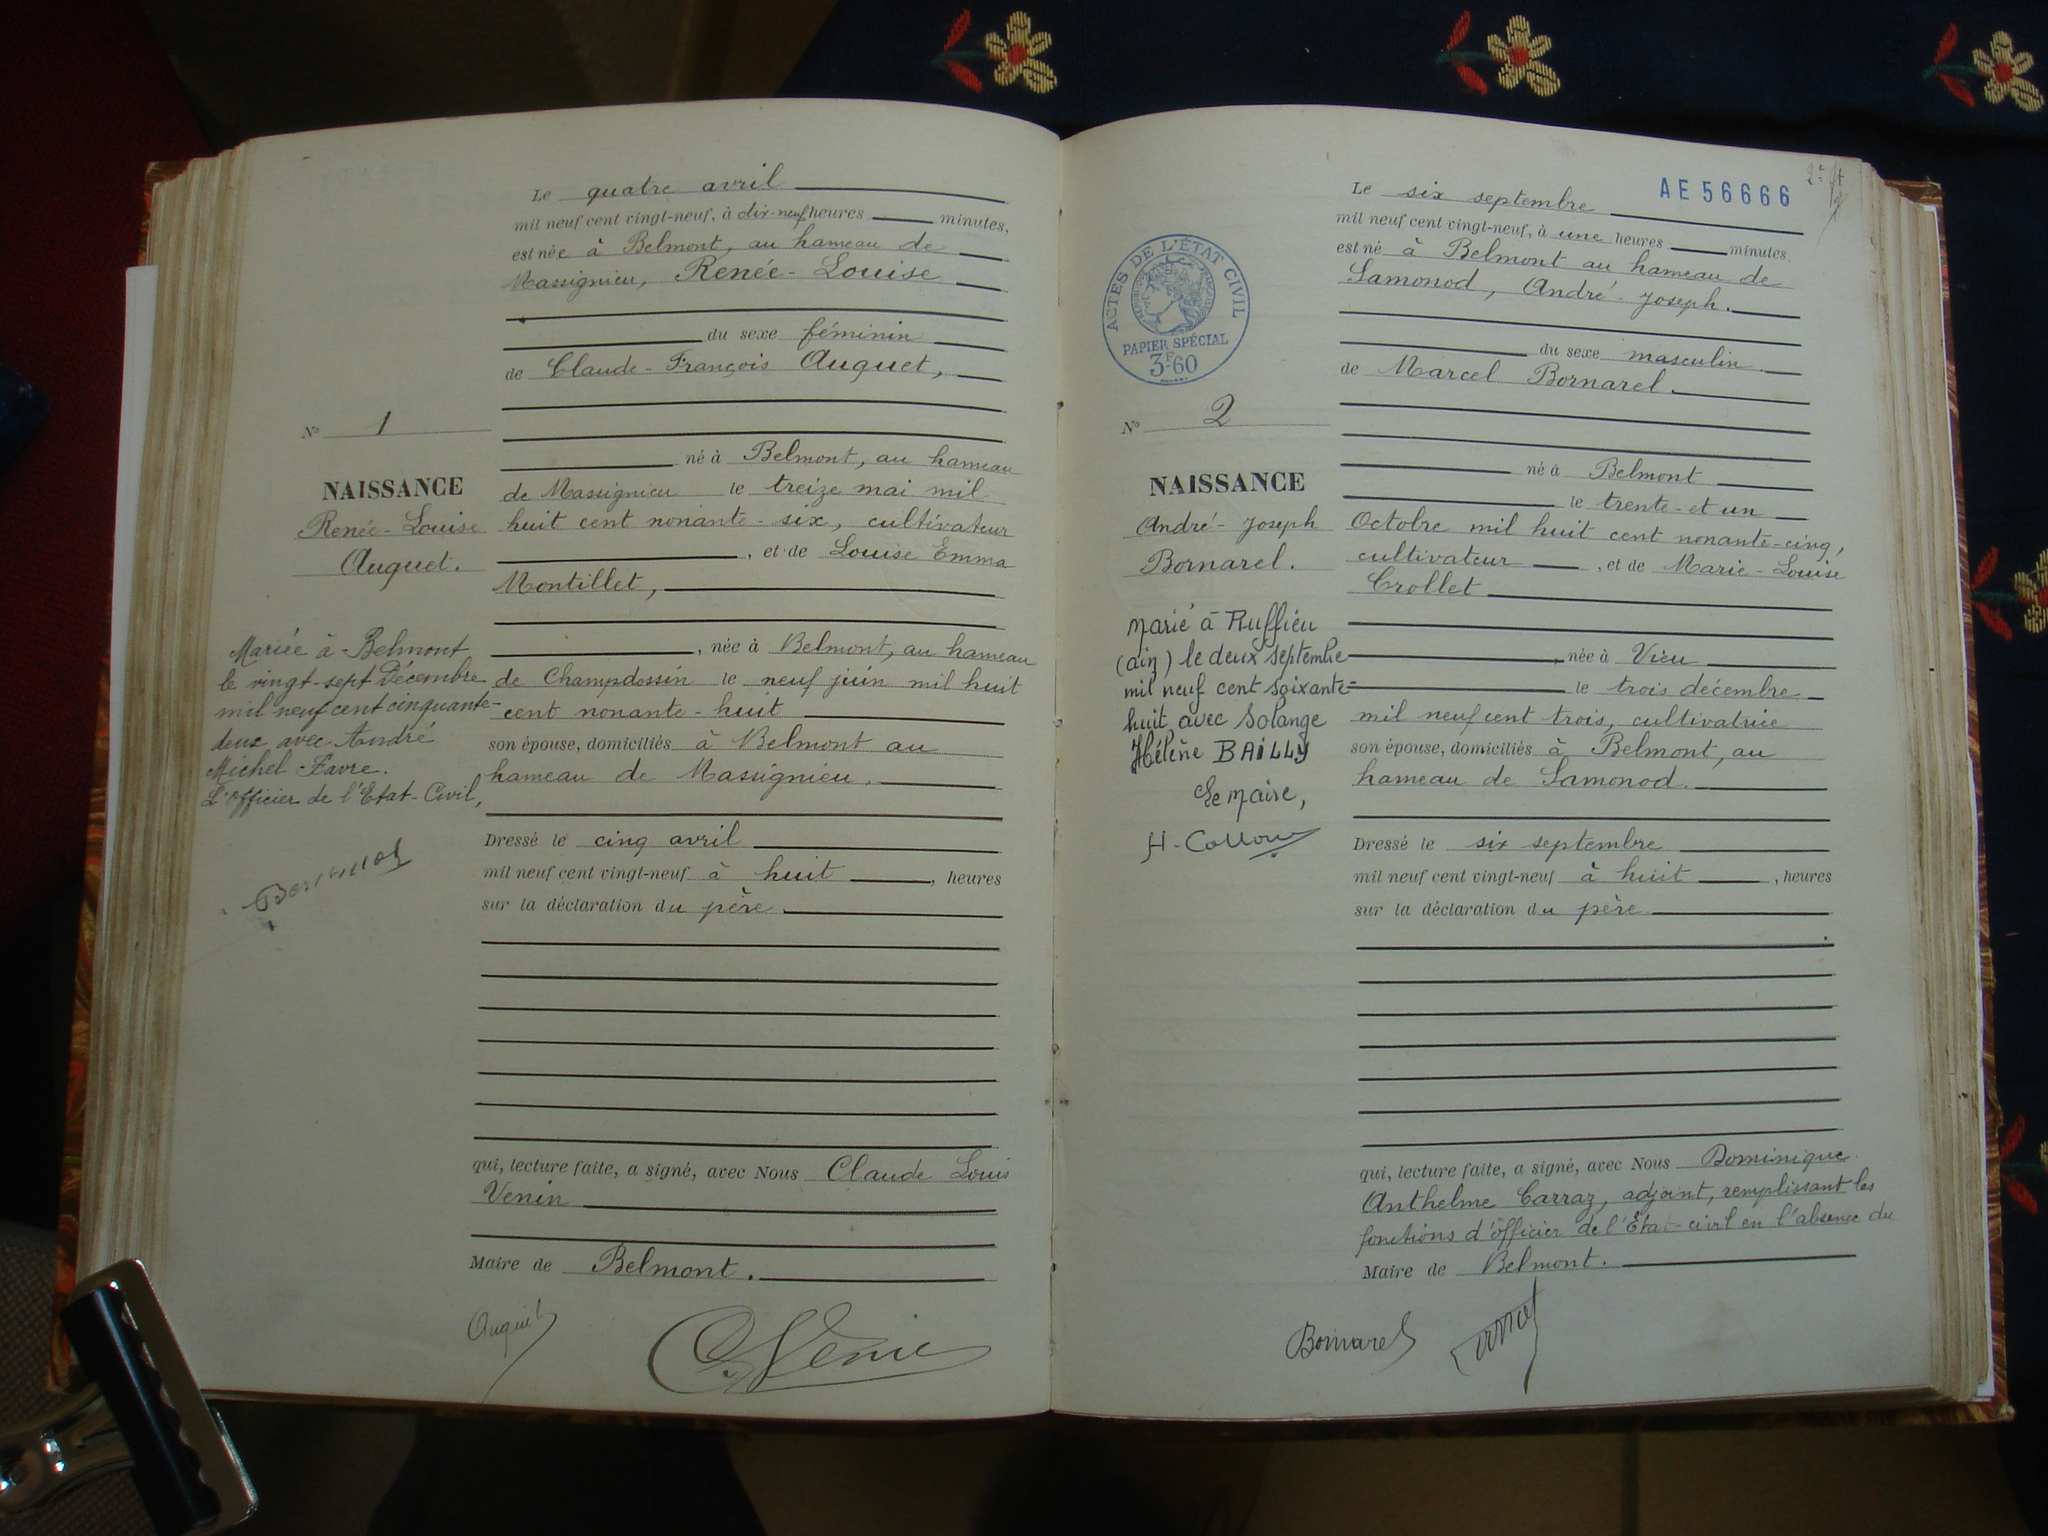 Le quatre avril
mil neuf cent vingt-neuf, à dix-neuf heures minutes,
est née à Belmont, au hameau de
Massignieu, Renée-Louise
du sexe féminin
de Claude-François Auguet,
né à Belmont, au hameau
de Massignieu le treize mai mil
huit cent nonante-six, cultivateur
, et de Louise Emma
Montillet,
, née à Belmont, au hameau
de Champdossin le neuf juin mil huit
cent nonante-huit
son épouse, domiciliés à Belmont au
hameau de Massignieu.
Dressé le cinq avril
mil neuf cent vingt-neuf à huit , heures
sur la déclaration du père.
qui, lecture faite, a signé, avec Nous Claude Louis
Venin
Maire de Belmont.
Auguet
Venin
No 1
NAISSANCE
Renée-Louise
Auguet.
Mariée à Belmont
le vingt-sept Décembre
mil neuf cent cinquante-
deux avec André
Michel Favre.
L'officier de l'Etat-Civil,
AE 56666
Le six septembre
mil neuf cent vingt-neuf, à une heures minutes.
est né à Belmont au hameau de
Samonod, André-Joseph.
du sexe masculin
de Marcel Bornarel.
né à Belmont
le trente-et un
Octobre mil huit cent nonante-cinq,
cultivateur , et de Marie-Louise
Crollet
, née à Vieu
le trois décembre
mil neuf cent trois, cultivatrice
son épouse, domiciliés à Belmont, au
hameau de Samonod.
Dressé le six septembre
mil neuf cent vingt-neuf à huit , heures
sur la déclaration du père
qui, lecture faite, a signé, avec Nous Dominique
Anthelme Carraz, adjoint, remplissant les
fonctions d'officier de l'État-civil en l'absence du
Maire de Belmont.
Bornarel
ACTES DE L'ÉTAT CIVIL
PAPIER SPÉCIAL
3F60
No 2
NAISSANCE
André-Joseph
Bornarel.
Marié à Ruffieu
(ain) le deux septembre
mil neuf cent soixante-
huit avec Solange
Hélène BAILLY
Le Maire,